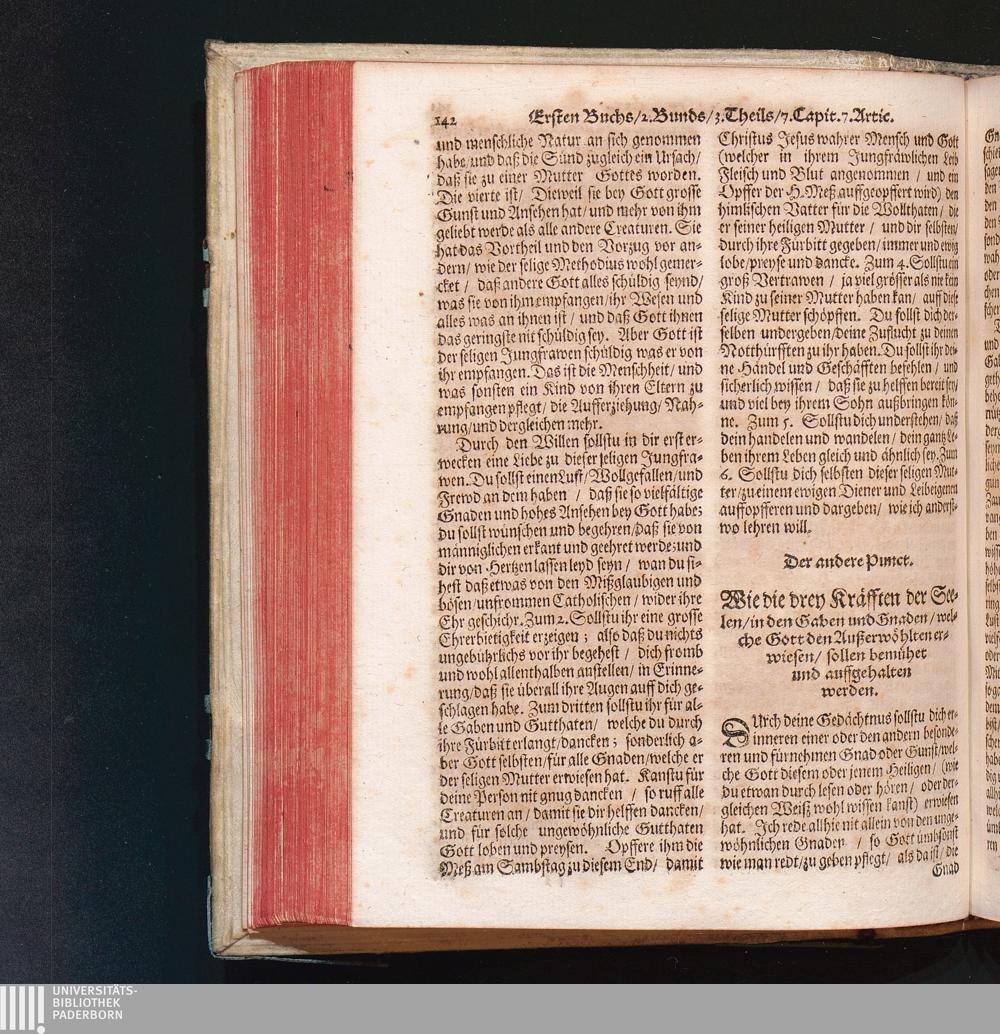 142
Ersten Buchs/2.Bunds/3.Theils/7.Capit.7.Artic.
und menschliche Natur an sich genommen
habe/und daß die Sünd zugleich ein Ursach/
daß sie zu einer Mutter Gottes worden.
Die vierte ist/ Dieweil sie bey Gott grosse
Gunst und Ansehen hat/ und mehr von ihm
geliebt werde als alle andere Creaturen. Sie
hat das Vortheil und den Vorzug vor an-
dern/ wie der selige Methodius wohl gemer-
cket / daß andere Gott alles schüldig seynd/
was sie von ihm empfangen/ihr Wesen und
alles was an ihnen ist / und daß Gott ihnen
das geringste nit schüldig sey. Aber Gott ist
der seligen Jungfrawen schüldig was er von
ihr empfangen. Das ist die Menschheit/ und
was sonsten ein Kind von ihren Eltern zu
empfangen pflegt/ die Aufferziehung/ Nah-
rung/ und dergleichen mehr.
Durch den Willen sollstu in dir erst er-
wecken eine Liebe zu dieser seligen Jungfra-
wen. Du sollst einen Lust/ Wollgefallen/und
Frewd an dem haben / daß sie so vielfältige
Gnaden und hohes Ansehen bey Gott habe;
du sollst wünschen und begehren/daß sie von
männiglichen erkant und geehret werde; und
dir von Hertzen lassen leyd seyn / wan du si-
hest daß etwas von den Mißglaubigen und
bösen/unfrommen Catholischen / wider ihre
Ehr geschicht. Zum 2. Sollstu ihr eine grosse
Ehrerbietigkeit erzeigen ; also daß du nichts
ungebührlichs vor ihr begehest / dich fromb
und wohl allenthalben anstellen / in Erinne-
rung/daß sie überall ihre Augen auff dich ge-
schlagen habe. Zum dritten sollstu ihr für al-
le Gaben und Gutthaten/ welche du durch
ihre Fürbitt erlangt/dancken ; sonderlich a-
ber Gott selbsten/für alle Gnaden/welche er
der seligen Mutter erwiesen hat. Kanstu für
deine Person nit gnug dancken / so ruff alle
Creaturen an / damit sie dir helffen dancken/
und für solche ungewöhnliche Gutthaten
Gott loben und preysen. Opffere ihm die
Meß am Sambstag zu diesem End/ damit
Christus Jesus wahrer Mensch und Gott
(welcher in ihrem Jungfräwlichen Leib
Fleisch und Blut angenommen / und ein
Opffer der H. Meß auffgeopffert wird) den
himlischen Vatter für die Wollthaten / die
er seiner heiligen Mutter / und dir selbsten/
durch ihre Fürbitt gegeben/ immer und ewig
lobe/preyse und dancke. Zum 4. Sollstu ein
groß Vertrawen / ja viel grösser als nie kein
Kind zu seiner Mutter haben kan/ auff diese
selige Mutter schöpffen. Du sollst dich der-
selben undergeben/deine Zuflucht zu deinen
Notthürfften zu ihr haben. Du sollst ihr dei-
ne Händel und Geschäfften befehlen / und
sicherlich wissen / daß sie zu helffen bereit sey/
und viel bey ihrem Sohn außbringen kön-
ne. Zum 5. Sollstu dich understehen/ daß
dein handelen und wandelen / dein gantz Le-
ben ihrem Leben gleich und ähnlich sey. Zum
6. Sollstu dich selbsten dieser seligen Mut-
ter/zu einem ewigen Diener und Leibeigenen
auffopfferen und dargeben/ wie ich anderst-
wo lehren will.
Der andere Punct.
Wie die drey Kräfften der See-
len/in den Gaben und Gnaden/wel-
che Gott den Außerwöhlten er-
wiesen/ sollen bemühet
und auffgehalten
werden.
DUrch deine Gedächtnus sollstu dich er-
inneren einer oder den andern besonde-
ren und fürnehmen Gnad oder Gunst/wel-
che Gott diesem oder jenem Heiligen/ (wie
du etwan durch lesen oder hören / oder der-
gleichen Weiß wohl wissen kanst) erwiesen
hat. Ich rede allhie nit allein von den unge-
wöhnlichen Gnaden / so Gott umbsonst
wie man redt/zu geben pflegt/ als da ist/ die
Gnad
UNIVERSITÄTS-
BIBLIOTHEK
PADERBORN